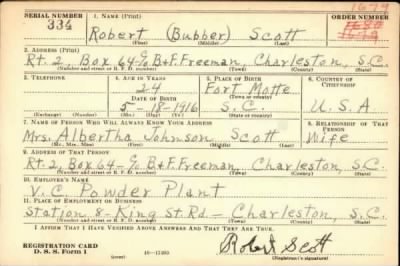 SERIAL NUMBER 1. NAME (Print) ORDER NUMBER
1679
334 Robert (Bubber) Scott 1679
(First) (Middle) (Last)
2. ADDRESS (Print)
Rt. 2, Box 64-c/o B & F. Freeman, Charleston, S.C.
(Number and street or R. F. D. number) (Town) (County) (State)
3. TELEPHONE 4. AGE IN YEARS 5. PLACE OF BIRTH 6. COUNTRY OF CITIZENSHIP
24 Fort Motte
DATE OF BIRTH (Town or county)
5-18-1916 S.C. U.S.A
(Exchange) (Number) (Mo.) (Day) (Yr.) (State or country)
7. NAME OF PERSON WHO WILL ALWAYS KNOW YOUR ADDRESS 8. RELATIONSHIP OF THAT PERSON
Mrs. Albertha Johnson Scott Wife
(Mr., Mrs., Miss) (First) (Middle) (Last)
9. ADDRESS OF THAT PERSON
Rt. 2, Box 64-c/o B & F. Freeman, Charleston, S.C.
(Number and street or R. F. D. number) (Town) (County) (State)
10. EMPLOYER'S NAME
V.C. Powder Plant
11. PLACE OF EMPLOYMENT OR BUSINESS
Station 8-King St. Rd.- Charleston, S.C.
(Number and street or R. F. D. number) (Town) (County) (State)
I AFFIRM THAT I HAVE VERIFIED ABOVE ANSWERS AND THAT THEY ARE TRUE.
REGISTRATION CARD
D. S. S. Form 1 (over) 16-17105 Robert Scott
(Registrant's signature)